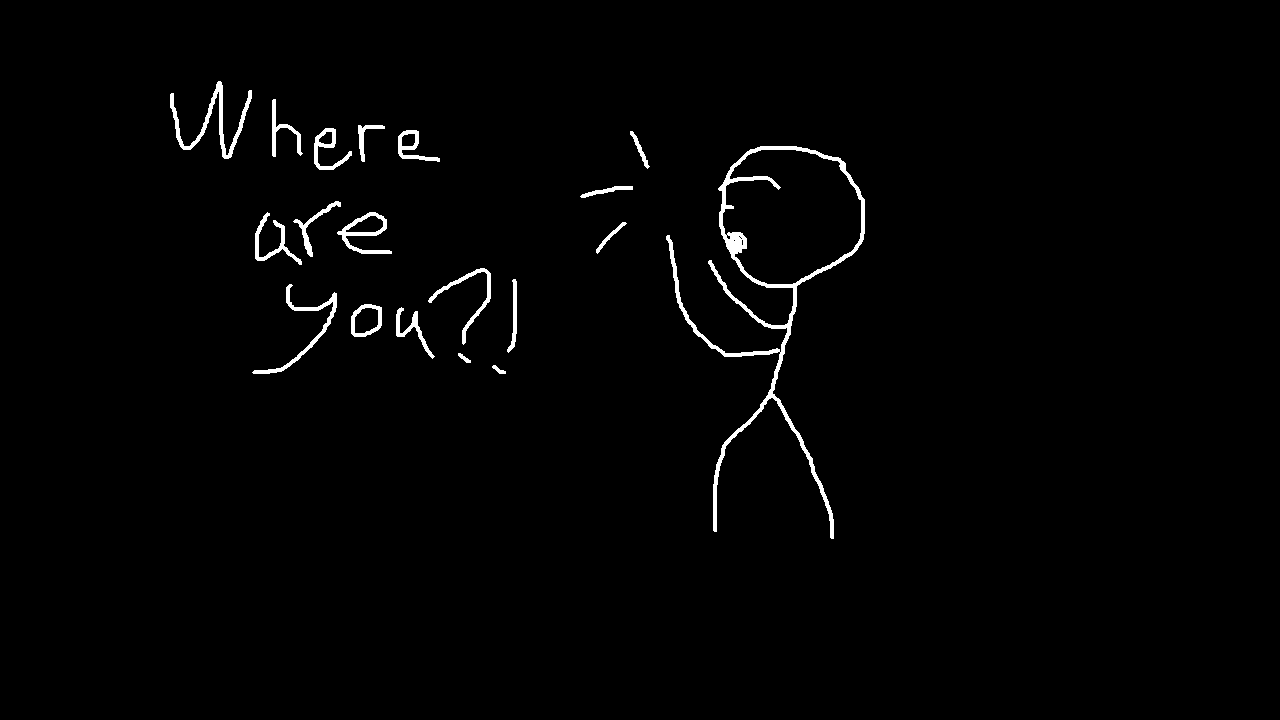 Where
are
you?!